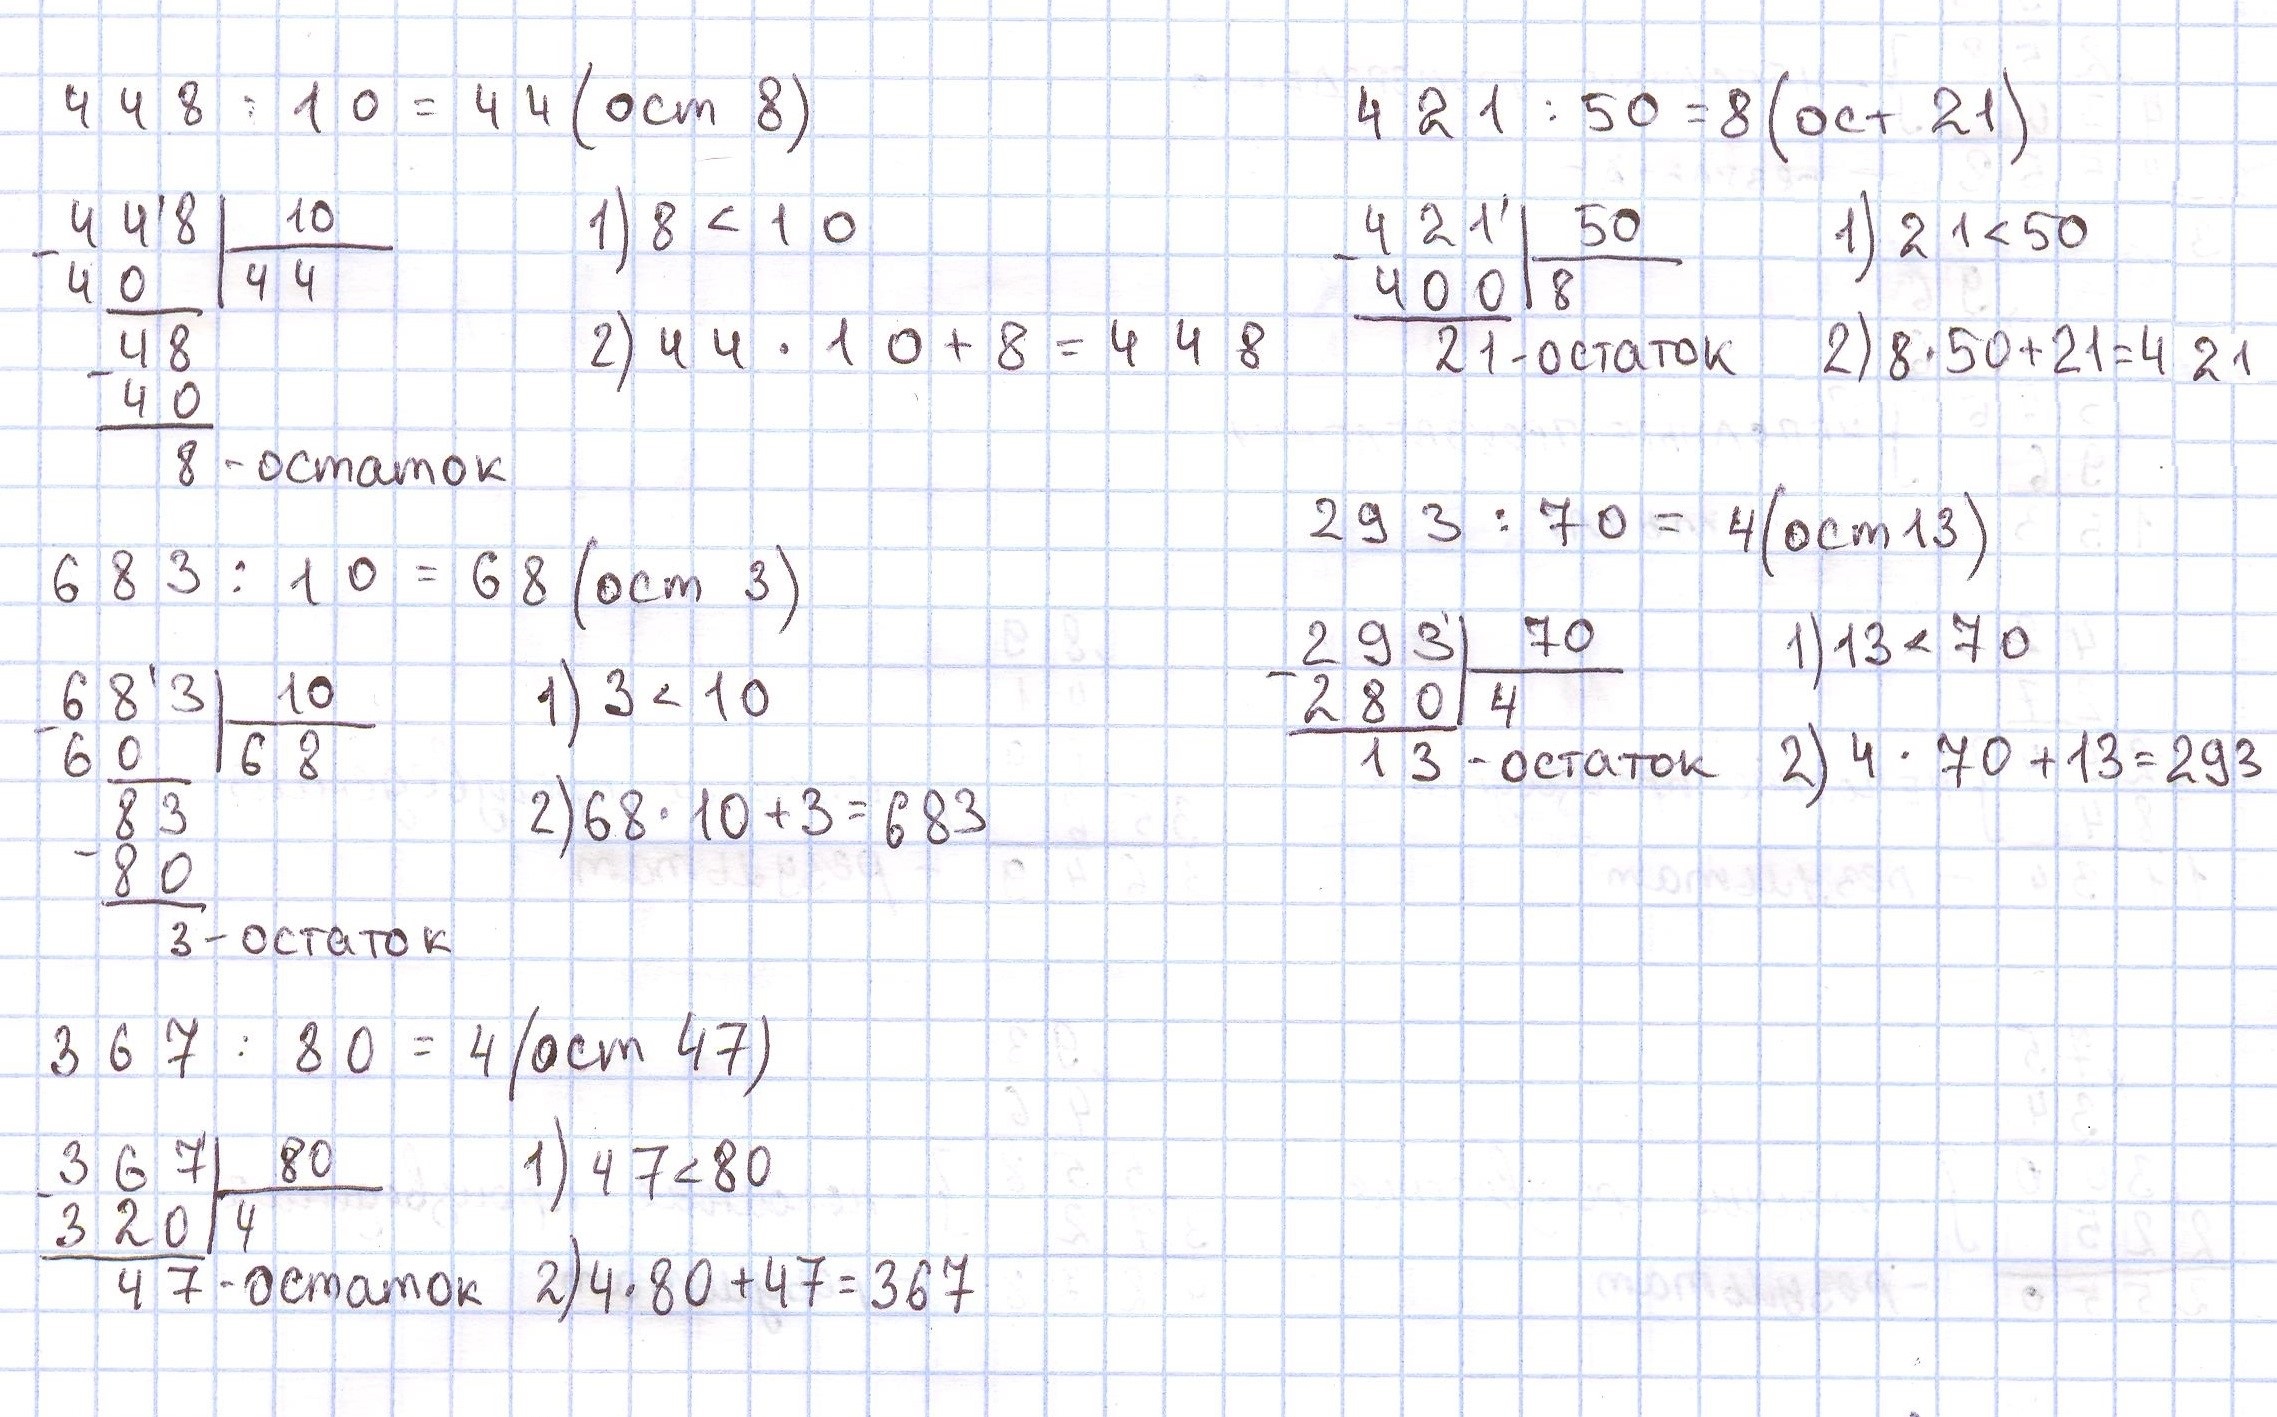 448 : 10 = 44 (ост 8)
448 | 10
- 40 | 44
48
- 40
8 - остаток
1) 8 < 10
2) 44 · 10 + 8 = 448
683 : 10 = 68 (ост 3)
683 | 10
- 60 | 68
83
- 80
3 - остаток
1) 3 < 10
2) 68 · 10 + 3 = 683
367 : 80 = 4 (ост 47)
367 | 80
- 320 | 4
47 - остаток
1) 47 < 80
2) 4 · 80 + 47 = 367
421 : 50 = 8 (ост 21)
421 | 50
- 400 | 8
21 - остаток
1) 21 < 50
2) 8 · 50 + 21 = 421
293 : 70 = 4 (ост 13)
293 | 70
- 280 | 4
13 - остаток
1) 13 < 70
2) 4 · 70 + 13 = 293